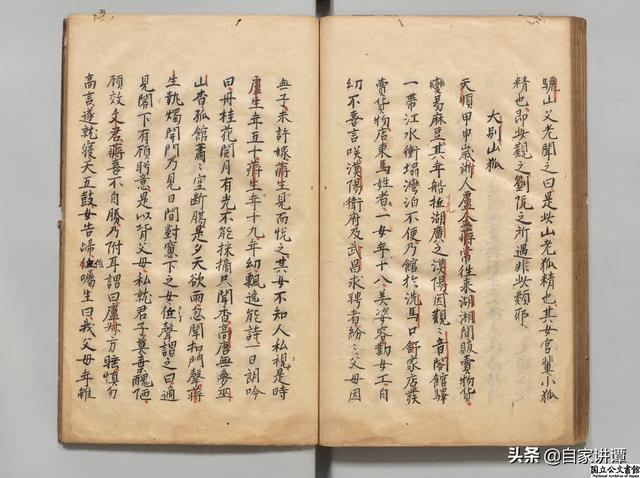 驪山父老聞之曰是此山老狐精也其女官輩小狐
精也即此觀之劉阮之所遇非此類耶
大別山狐
天順甲申歲浙人盧金蔣常徃來湖湘間販賣物貨
變易麻豆其年船抵湖廣之漢陽因觀音閣館驛
一帶江水衝塌灣泊不便乃館於洗馬口舒家店發
賣貨物店東馬姓者一女年十八美姿容勤女工自
幼不喜言咲漢陽衛府及武昌求聘者紛〻父母因
無子未許嫁蔣生見而悅之其母不知人私視是時
盧生年五十蔣生年十九年幼飄逸能詩一日朗吟
曰丹桂花開月有光不能採摘只聞香高唐無夢巫
山杳孤館蕭〻空斷腸是夕天欲雨忽聞扣門聲蔣
生執燭開門乃見日間對窻下之女低聲謂之曰適
見閣下有顧盼意是以背父母私就君子莫棄醜陋
願效文君蔣喜不自勝乃附耳謂曰盧兄方睡慎勿
高言遂就寝天五鼓女告歸低囑生曰我父母年雖
头条 @自家讲谭
国立公文書館
National Archives of Japan